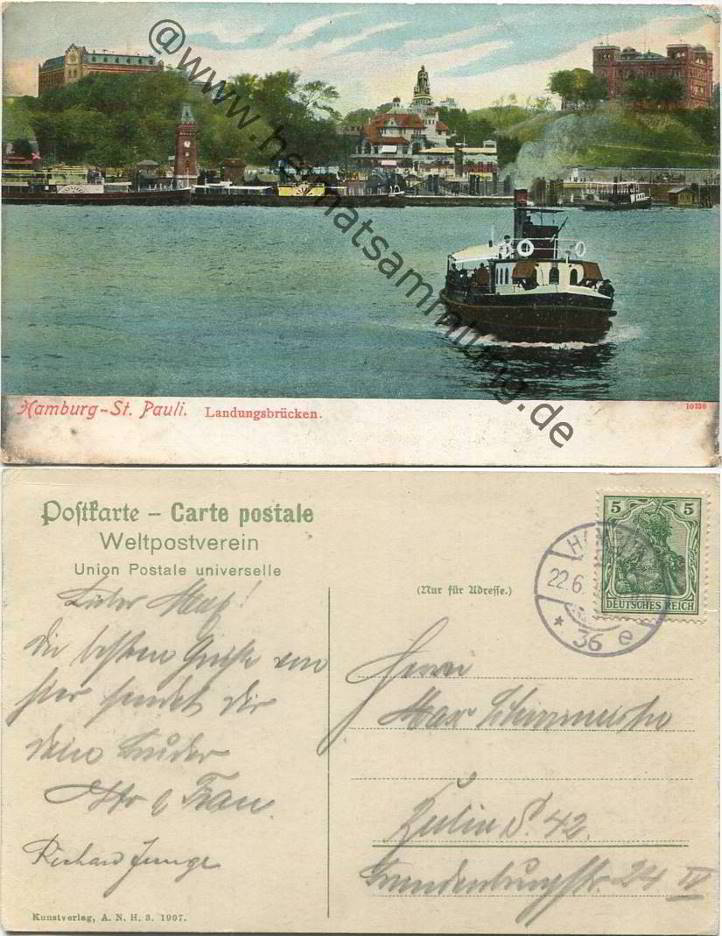 @www.heimatsammlung.de
Hamburg-St. Pauli. Landungsbrücken.
Postkarte – Carte postale
Weltpostverein
Union Postale universelle
(Nur für Adresse.)
5 5
DEUTSCHES REICH
22.6.
* 36 e
Lieber Max!
die besten Grüße von
hier sendet dir
dein Bruder
Otto & Frau.
Richard Junge
Herrn
Max
Berlin S. 42.
Brandenburgstr. 24 IV
Kunstverlag, A. N. H. 3. 1907.